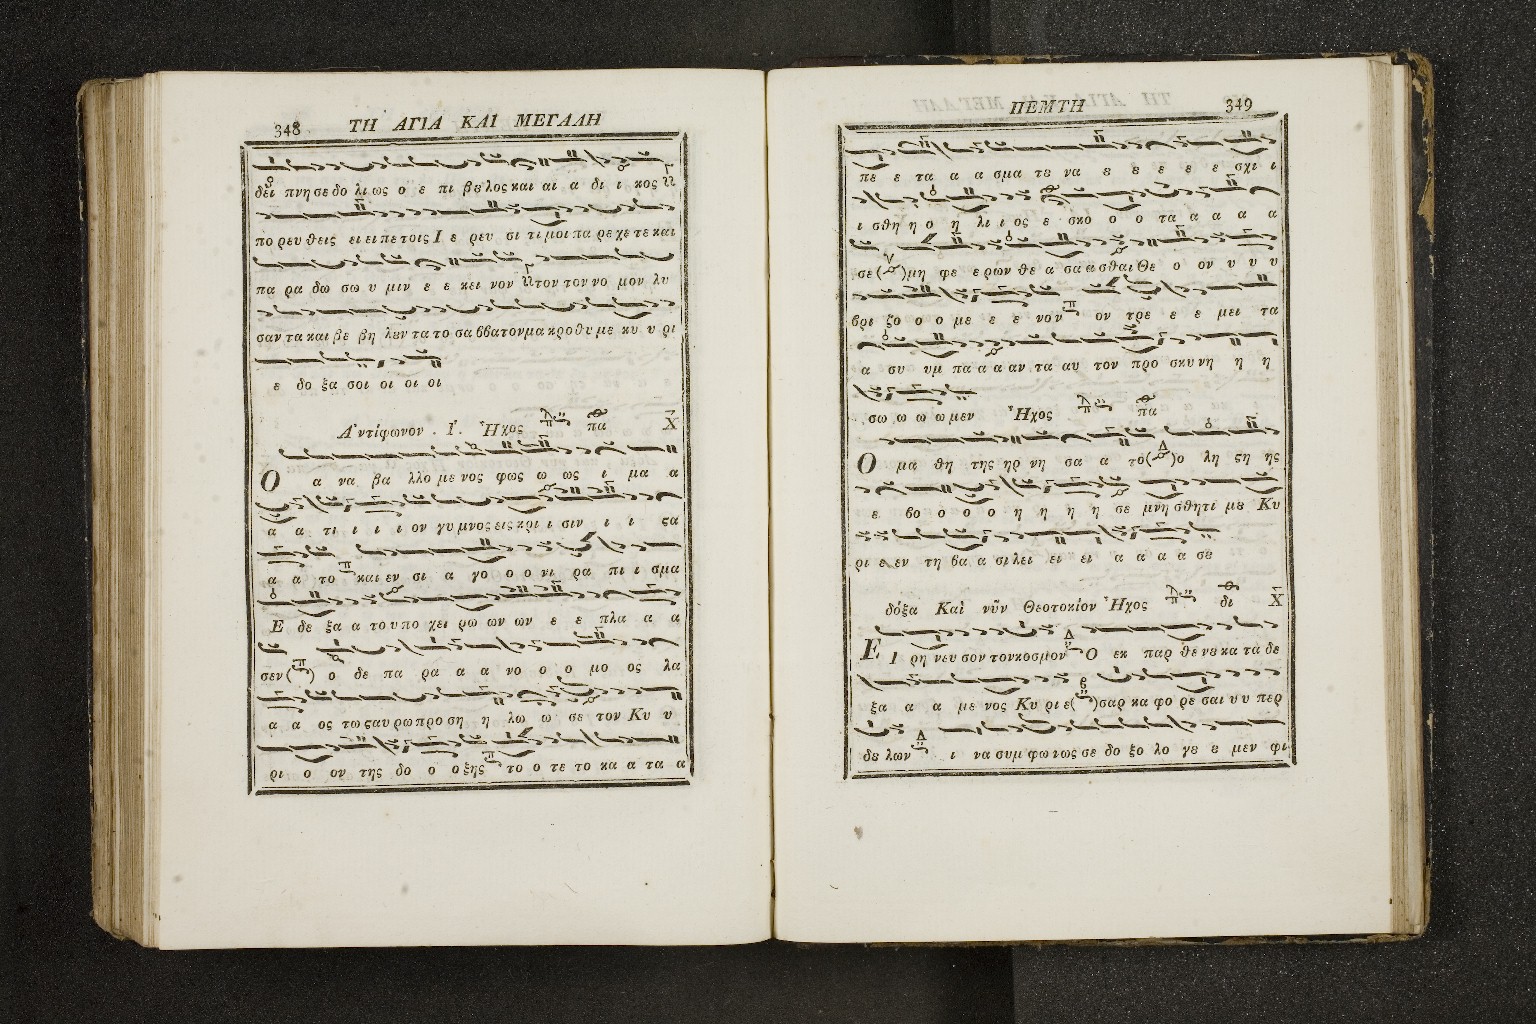 348 ΤΗ ΑΓΙΑ ΚΑΙ ΜΕΓΑΛΗ
δεῖ πνη σε δο λι ως ο ε πι βȣ λος και αι α δι ι κος
πο ρευ θεις ει ει πε τοις Ι ε ρευ σι τι μοι πα ρε χε τε και
πα ρα δω σω υ μιν ε ε κει νον τον τον νο μον λυ
σαν τα και βε βη λȣν τα το σα ββατον μα κρο θυ με κυ υ ρι
ε δο ξα σοι οι οι οι
Ἀντίφωνον . Ι. Ἦχος πα Χ
Ο α να βα λλο με νος φως ω ως ι μα α
α α τι ι ι ι ον γυ μνος εις κρι ι σιν ι ι ςα
α α το και εν σι α γο ο ο νι ρα πι ι σμα
Ε δε ξα α το υ πο χει ρω ων ων ε ε πλα α α
σεν ( ) ο δε πα ρα α α νο ο ο μο ος λα
α α ος τω ςαυ ρω προ ση η λω ω σε τον Κυ υ
ρι ο ον της δο ο ο ξης το ο τε το κα α τα α
ΠΕΜΤΗ 349
πε ε τα α α σμα τȣ να ȣ ȣ ȣ ȣ ε σχι ι
ι σθη η ο η λι ι ος ε σκο ο ο τα α α α α
σε( )μη φε ε ρων θε α σα α σθαι Θε ο ον υ υ υ
βρι ζο ο ο με ε ε νον ον τρε ε ε μει τα
α συ υμ πα α α αν τα αυ τον προ σκυ νη η η
σω ω ω ω μεν Ἦχος πα
Ο μα θη της ηρ νη σα α το( )ο λη ςη ης
ε βο ο ο ο η η η η σε μνη σθητι μȣ Κυ
ρι ε εν τη βα α σι λει ει ει α α α α σȣ
δόξα Καὶ νῦν Θεοτοκίον Ἦχος δι Χ
Ε Ι ρη νευ σον τον κοσμον Ο εκ παρ θε νȣ κα τα δε
ξα α α με νος Κυ ρι ε( )σαρ κα φο ρε σαι υ υ περ
δȣ λων ι να συμ φω νως σε δο ξο λο γȣ ȣ μεν φι